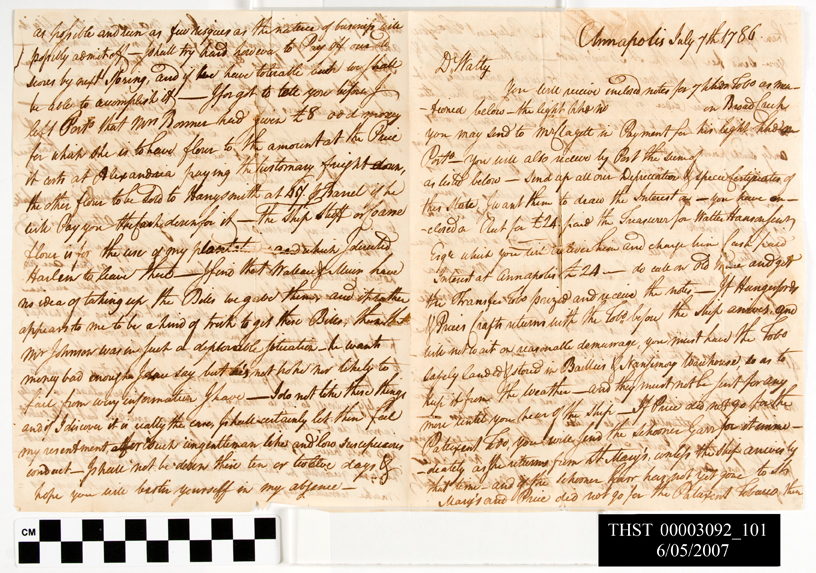 Annapolis July 7th. 1786.
Dr. Watty
You will receive inclosed notes for 7 hhds Tobo as men-
-tioned below - the light hhd no on Broad Creek
you may send to Mr Cazole in Payment for his light hhd
Port - You will also receive by Post the sum of
as listed below - Send up all our Depreciation & Specie Certificates of
this State I want them to draw the Interest - you have en-
-closed a Rect for £24 paid the Treasurer for Walter Hanson
Esqr. which you will receive him and charge him Cash paid
Interest at Annapolis £24 - do call on Old Price and get
the Transfer Tobo prized and receive the notes - If Hungerfords
& Prices Crafts return with the Tobo before the Ship arrives and
will not wait on reasonable demurrage, you must have the Tobo
safely landed & stored in Baillies & Nanjemoy Warehouse, so as to
keep it from the weather - and they must not be sent for any
more until you hear of the Ship - If Price did not go for the
Patuxent Tobo you will send the Schooner for it imme-
-diately as she returns from St. Mary's, unless the Ship arrives by
that time - and if the Schooner has not yet gone to St.
Mary's and Price did not go for the Patuxent Tobacco then
as possible and run as few risques as the nature of business will
possibly admit of - I shall try hard however to Pay off our
scores by next Spring, and if we have tolerable luck we shall
be able to accomplish it - I forgot to tell you before I
left Port that Mrs Bonner had given £8 odd money
for which she is to have flour to the amount at the Price
it costs at Alexandria paying the Customary freight down,
the other flour to be sold to Harrysmith at Barrel if he
will Pay you the Cash down for it - the Ship Stuff or Coarse
flour is for the use of my and which I directed
to leave there - I find that Wallace & Muir have
no idea of taking up the Bills we gave them, and it rather
appears to me to be a kind of trick to get these Bills, than that
Mr Johnson was in such a deplorable situation - he wants
money bad enough I dare say but has not nor likely to
fail from every information I have - I do not like these things
and if I discover it is really the case, I shall certainly let them feel
my resentment after such ungentleman like and low suspicious
conduct - I shall not be down these ten or twelve days &
hope you will bestir yourself in my absence -
CM
THST 00003092_101
6/05/2007